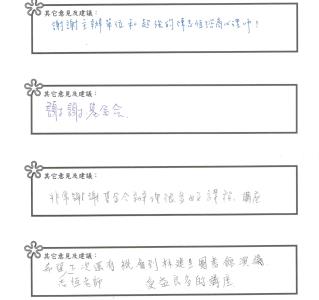 其它意見及建議：
謝謝主辦單位和超強的陳志恆諮商心理師！
其它意見及建議：
謝謝基金會
其它意見及建議：
非常謝謝基金會辦理很多的課程、講座
其它意見及建議：
希望下次還有機會到林邊圖書館演講
志恆老師 受益良多的講座